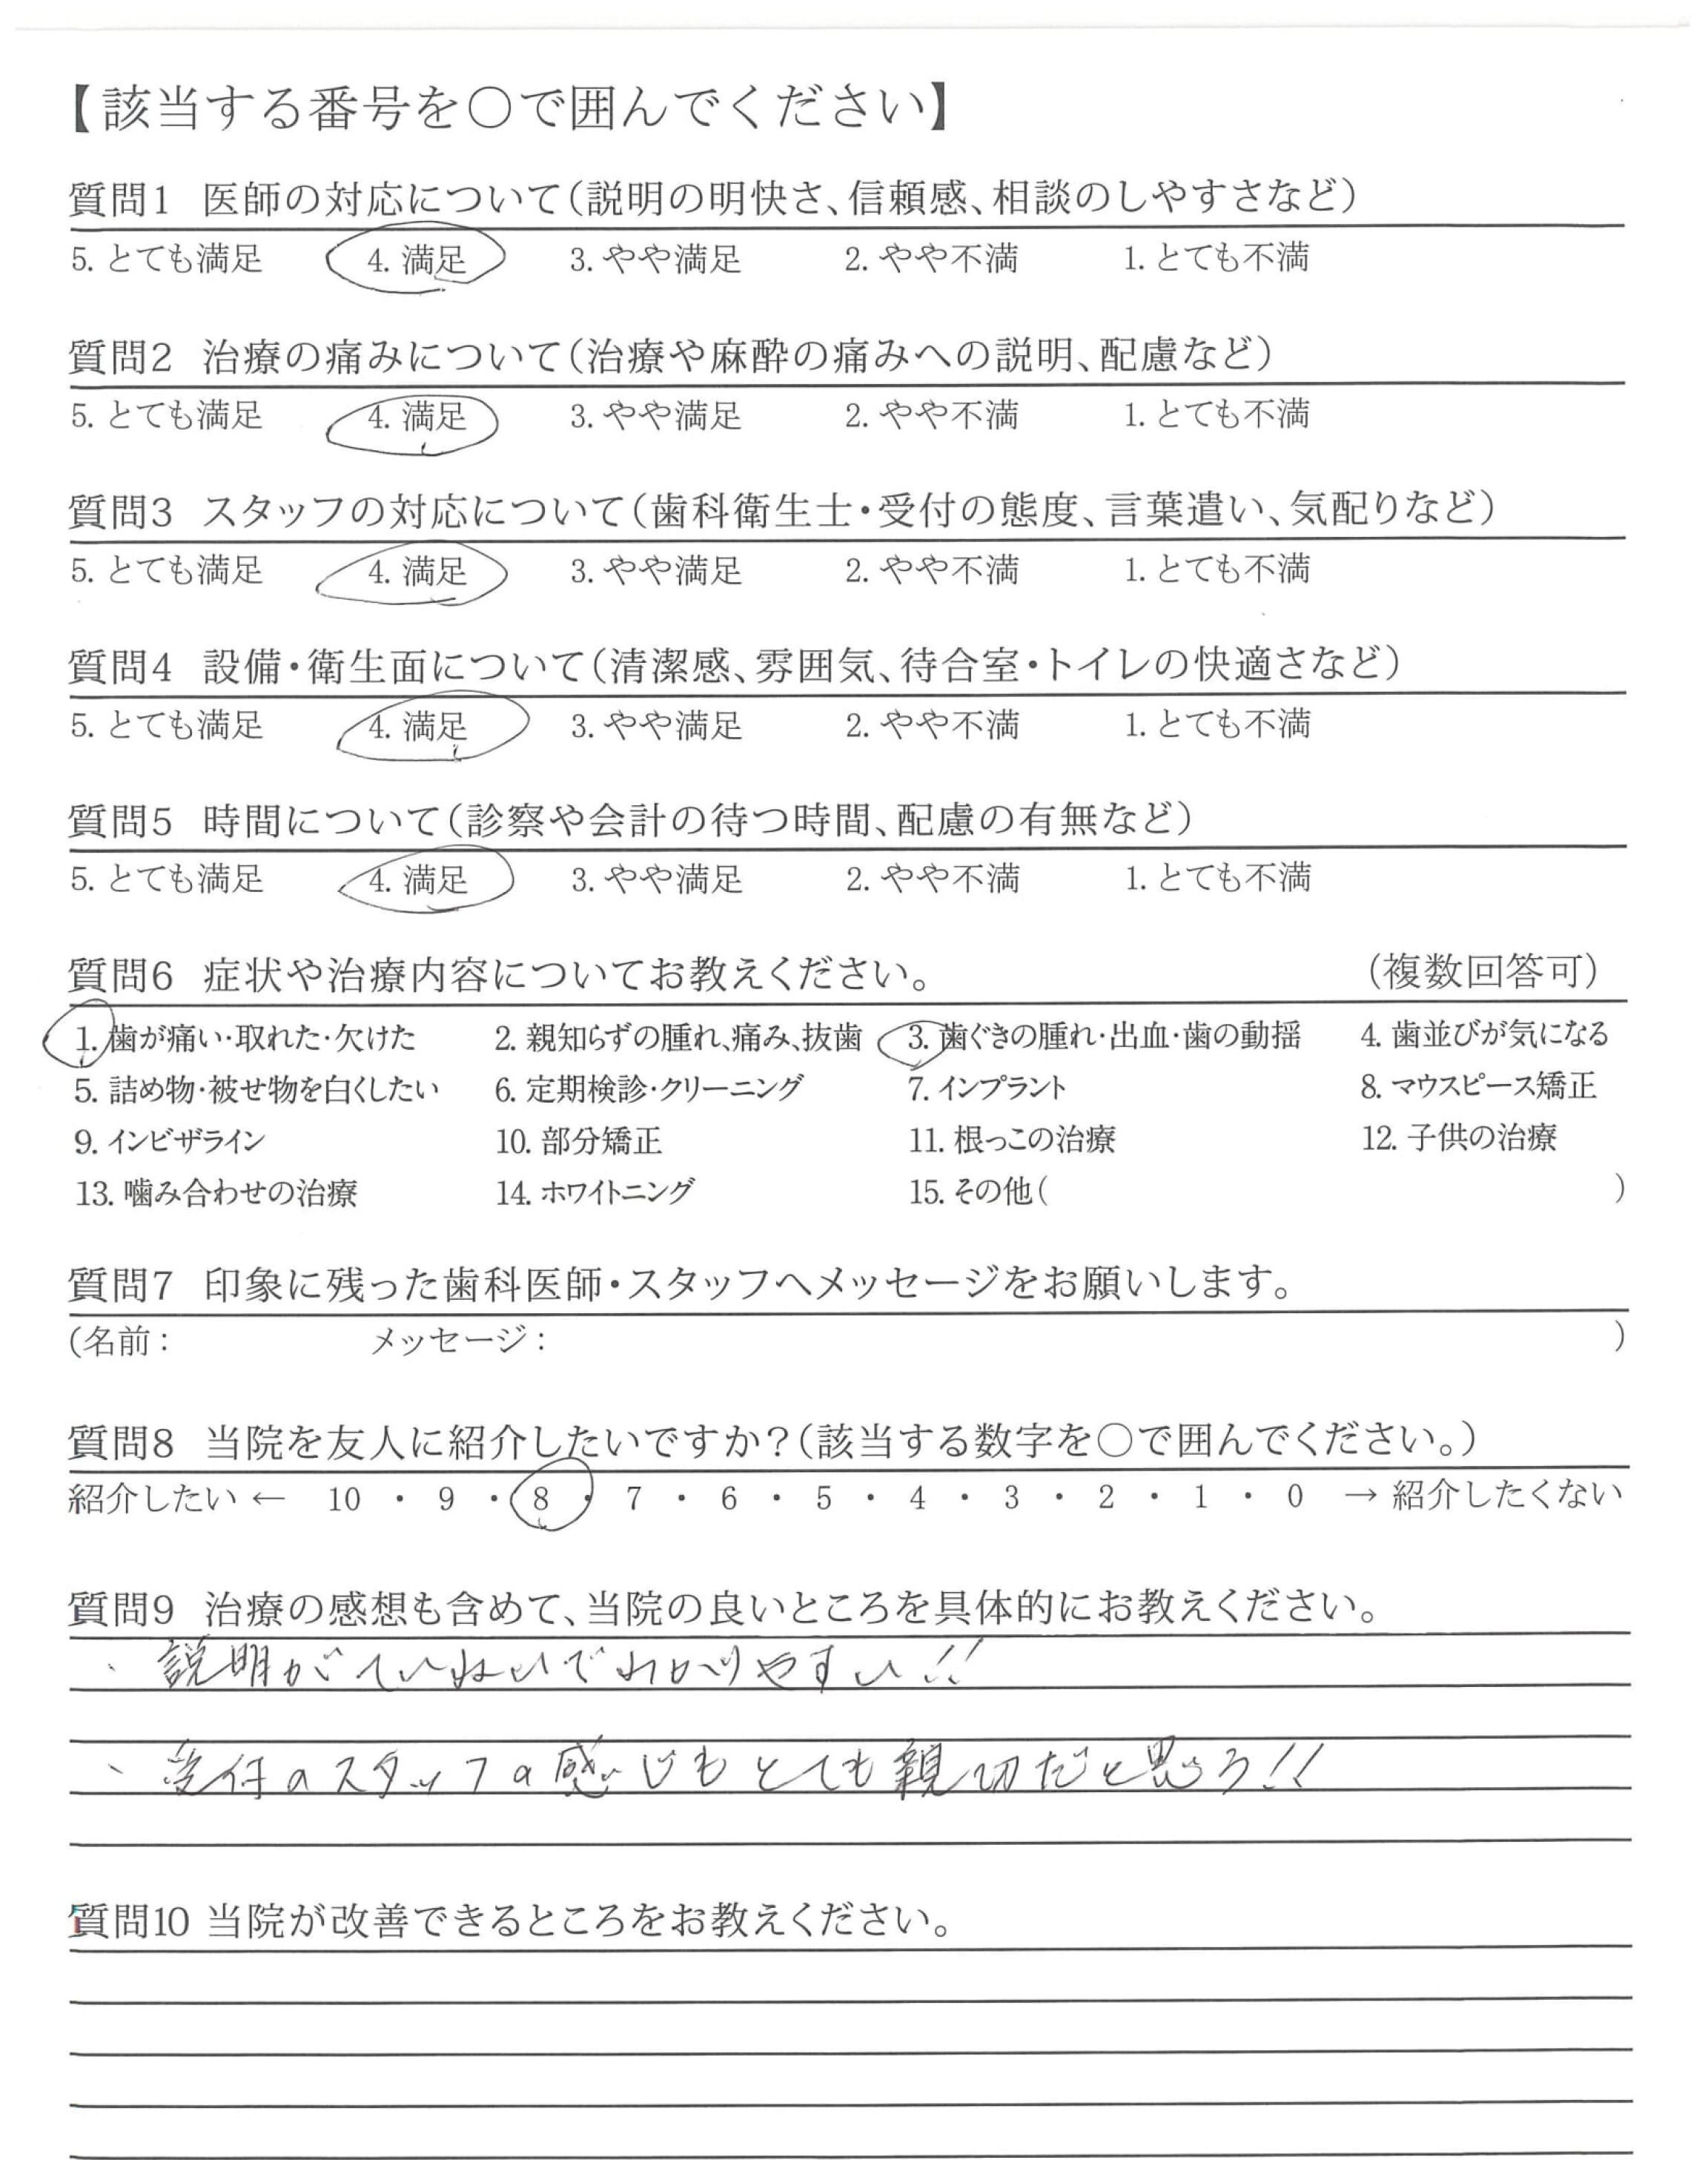 【該当する番号を〇で囲んでください】
質問1 医師の対応について(説明の明快さ、信頼感、相談のしやすさなど)
5. とても満足 4. 満足 3. やや満足 2. やや不満 1. とても不満
質問2 治療の痛みについて(治療や麻酔の痛みへの説明、配慮など)
5. とても満足 4. 満足 3. やや満足 2. やや不満 1. とても不満
質問3 スタッフの対応について(歯科衛生士・受付の態度、言葉遣い、気配りなど)
5. とても満足 4. 満足 3. やや満足 2. やや不満 1. とても不満
質問4 設備・衛生面について(清潔感、雰囲気、待合室・トイレの快適さなど)
5. とても満足 4. 満足 3. やや満足 2. やや不満 1. とても不満
質問5 時間について(診察や会計の待つ時間、配慮の有無など)
5. とても満足 4. 満足 3. やや満足 2. やや不満 1. とても不満
質問6 症状や治療内容についてお教えください。 (複数回答可)
1. 歯が痛い・取れた・欠けた 2. 親知らずの腫れ、痛み、抜歯 3. 歯ぐきの腫れ・出血・歯の動揺 4. 歯並びが気になる
5. 詰め物・被せ物を白くしたい 6. 定期検診・クリーニング 7. インプラント 8. マウスピース矯正
9. インビザライン 10. 部分矯正 11. 根っこの治療 12. 子供の治療
13. 噛み合わせの治療 14. ホワイトニング 15. その他( )
質問7 印象に残った歯科医師・スタッフへメッセージをお願いします。
(名前: メッセージ: )
質問8 当院を友人に紹介したいですか?(該当する数字を〇で囲んでください。)
紹介したい ← 10 ・ 9 ・ 8 ・ 7 ・ 6 ・ 5 ・ 4 ・ 3 ・ 2 ・ 1 ・ 0 → 紹介したくない
質問9 治療の感想も含めて、当院の良いところを具体的にお教えください。
、説明がていねいでわかりやすい!!
、受付のスタッフの感じもとても親切だと思う!!
質問10 当院が改善できるところをお教えください。